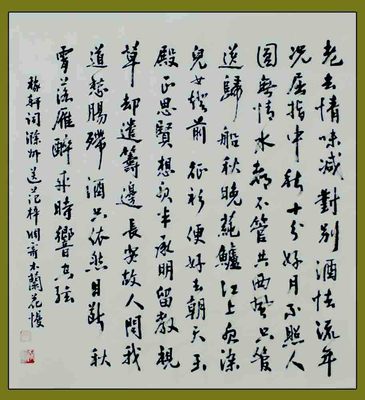 老去情味減對別酒怯流年
况屈指中秋十分好月不照人
圓無情水都不管共西風只管
送歸船秋晚蓴鱸江上夜深
兒女燈前征衫便好去朝天玉
殿正思賢想夜半承明留教視
草却遣籌邊長安故人問我
道愁腸殢酒只依然目斷秋
霄落雁醉來時響空弦
稼軒詞滁州送范倅調寄木蘭花慢